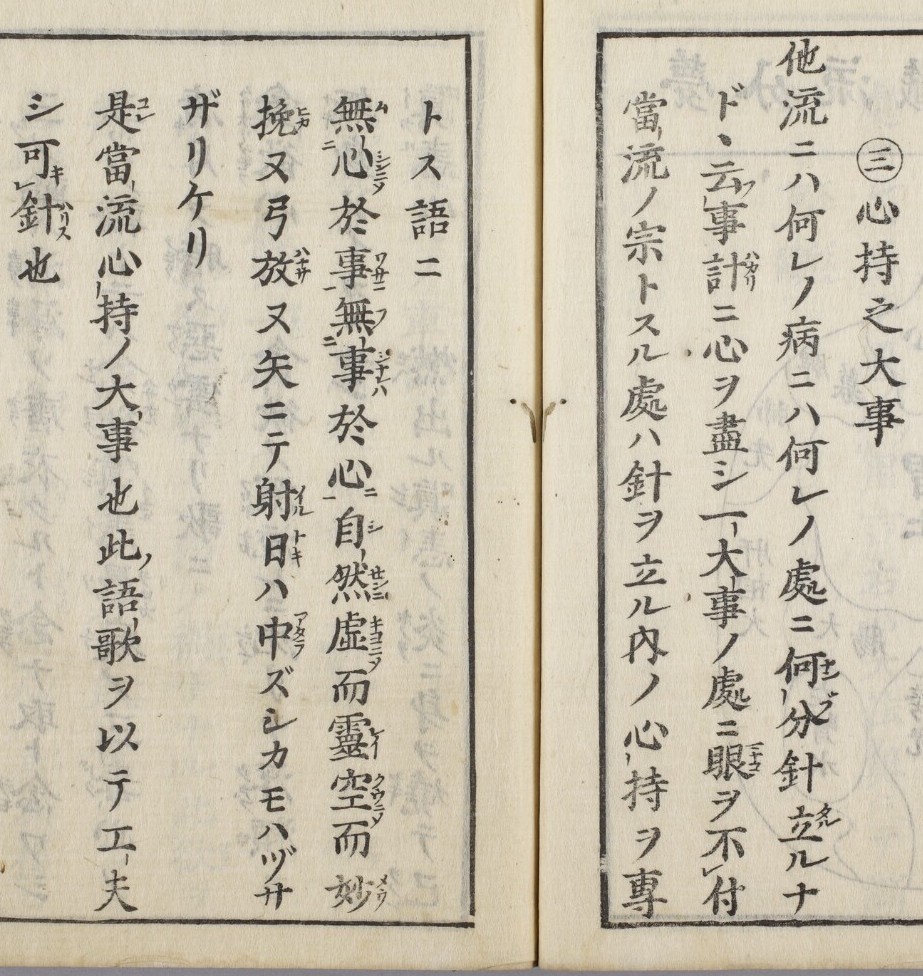 ㊂心持之大事
他流ニハ何レノ病ニハ何レノ處ニ何分針立ルナ
ドヽ云事計ニ心ヲ盡シ一大事ノ處ニ眼ヲ不付
當流ノ宗トスル處ハ針ヲ立ル内ノ心持ヲ專
トス語ニ
無心於事無事於心自然虛而靈空而妙
挽ヌ弓放ヌ矢ニテ射日ハ中ズシカモハヅサ
ザリケリ
是當流心持ノ大事也此語歌ヲ以テ工夫
シ可針也